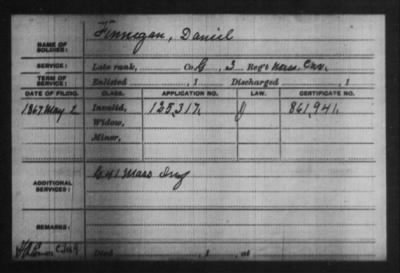 NAME OF SOLDIER: Finnegan, Daniel
SERVICE: Late rank, Co. G, 3 Reg't Mass. Cav.
TERM OF SERVICE: Enlisted , 1 Discharged , 1
DATE OF FILING. CLASS. APPLICATION NO. LAW. CERTIFICATE NO.
1867 May 2 Invalid, 125,317. 861,941.
Widow,
Minor,
ADDITIONAL SERVICES: G 41 Mass Inf
REMARKS:
Died , 1 , at